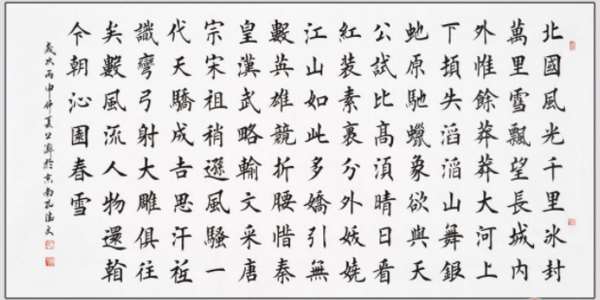 北國風光千里冰封
萬里雪飄望長城內
外惟餘莽莽大河上
下頓失滔滔山舞銀
虵原馳蠟象欲與天
公試比高須晴日看
紅裝素裹分外妖嬈
江山如此多嬌引無
數英雄競折腰惜秦
皇漢武略輸文采唐
宗宋祖稍遜風騷一
代天驕成吉思汗祗
識彎弓射大雕俱往
矣數風流人物還
今朝沁園春雪
歲次丙申仲夏於京南